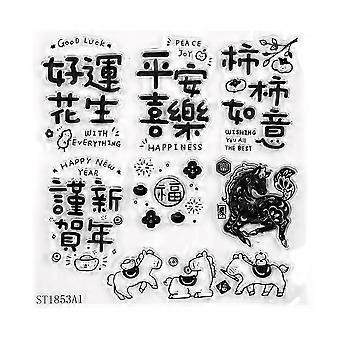 GOOD LUCK
好運
花生
WITH
EVERYTHING
PEACE
JOY
平安
喜樂
HAPPINESS
柿柿
如意
WISHING
YOU ALL
THE BEST
HAPPY NEW
YEAR
謹新
賀年
福
ST1853A1